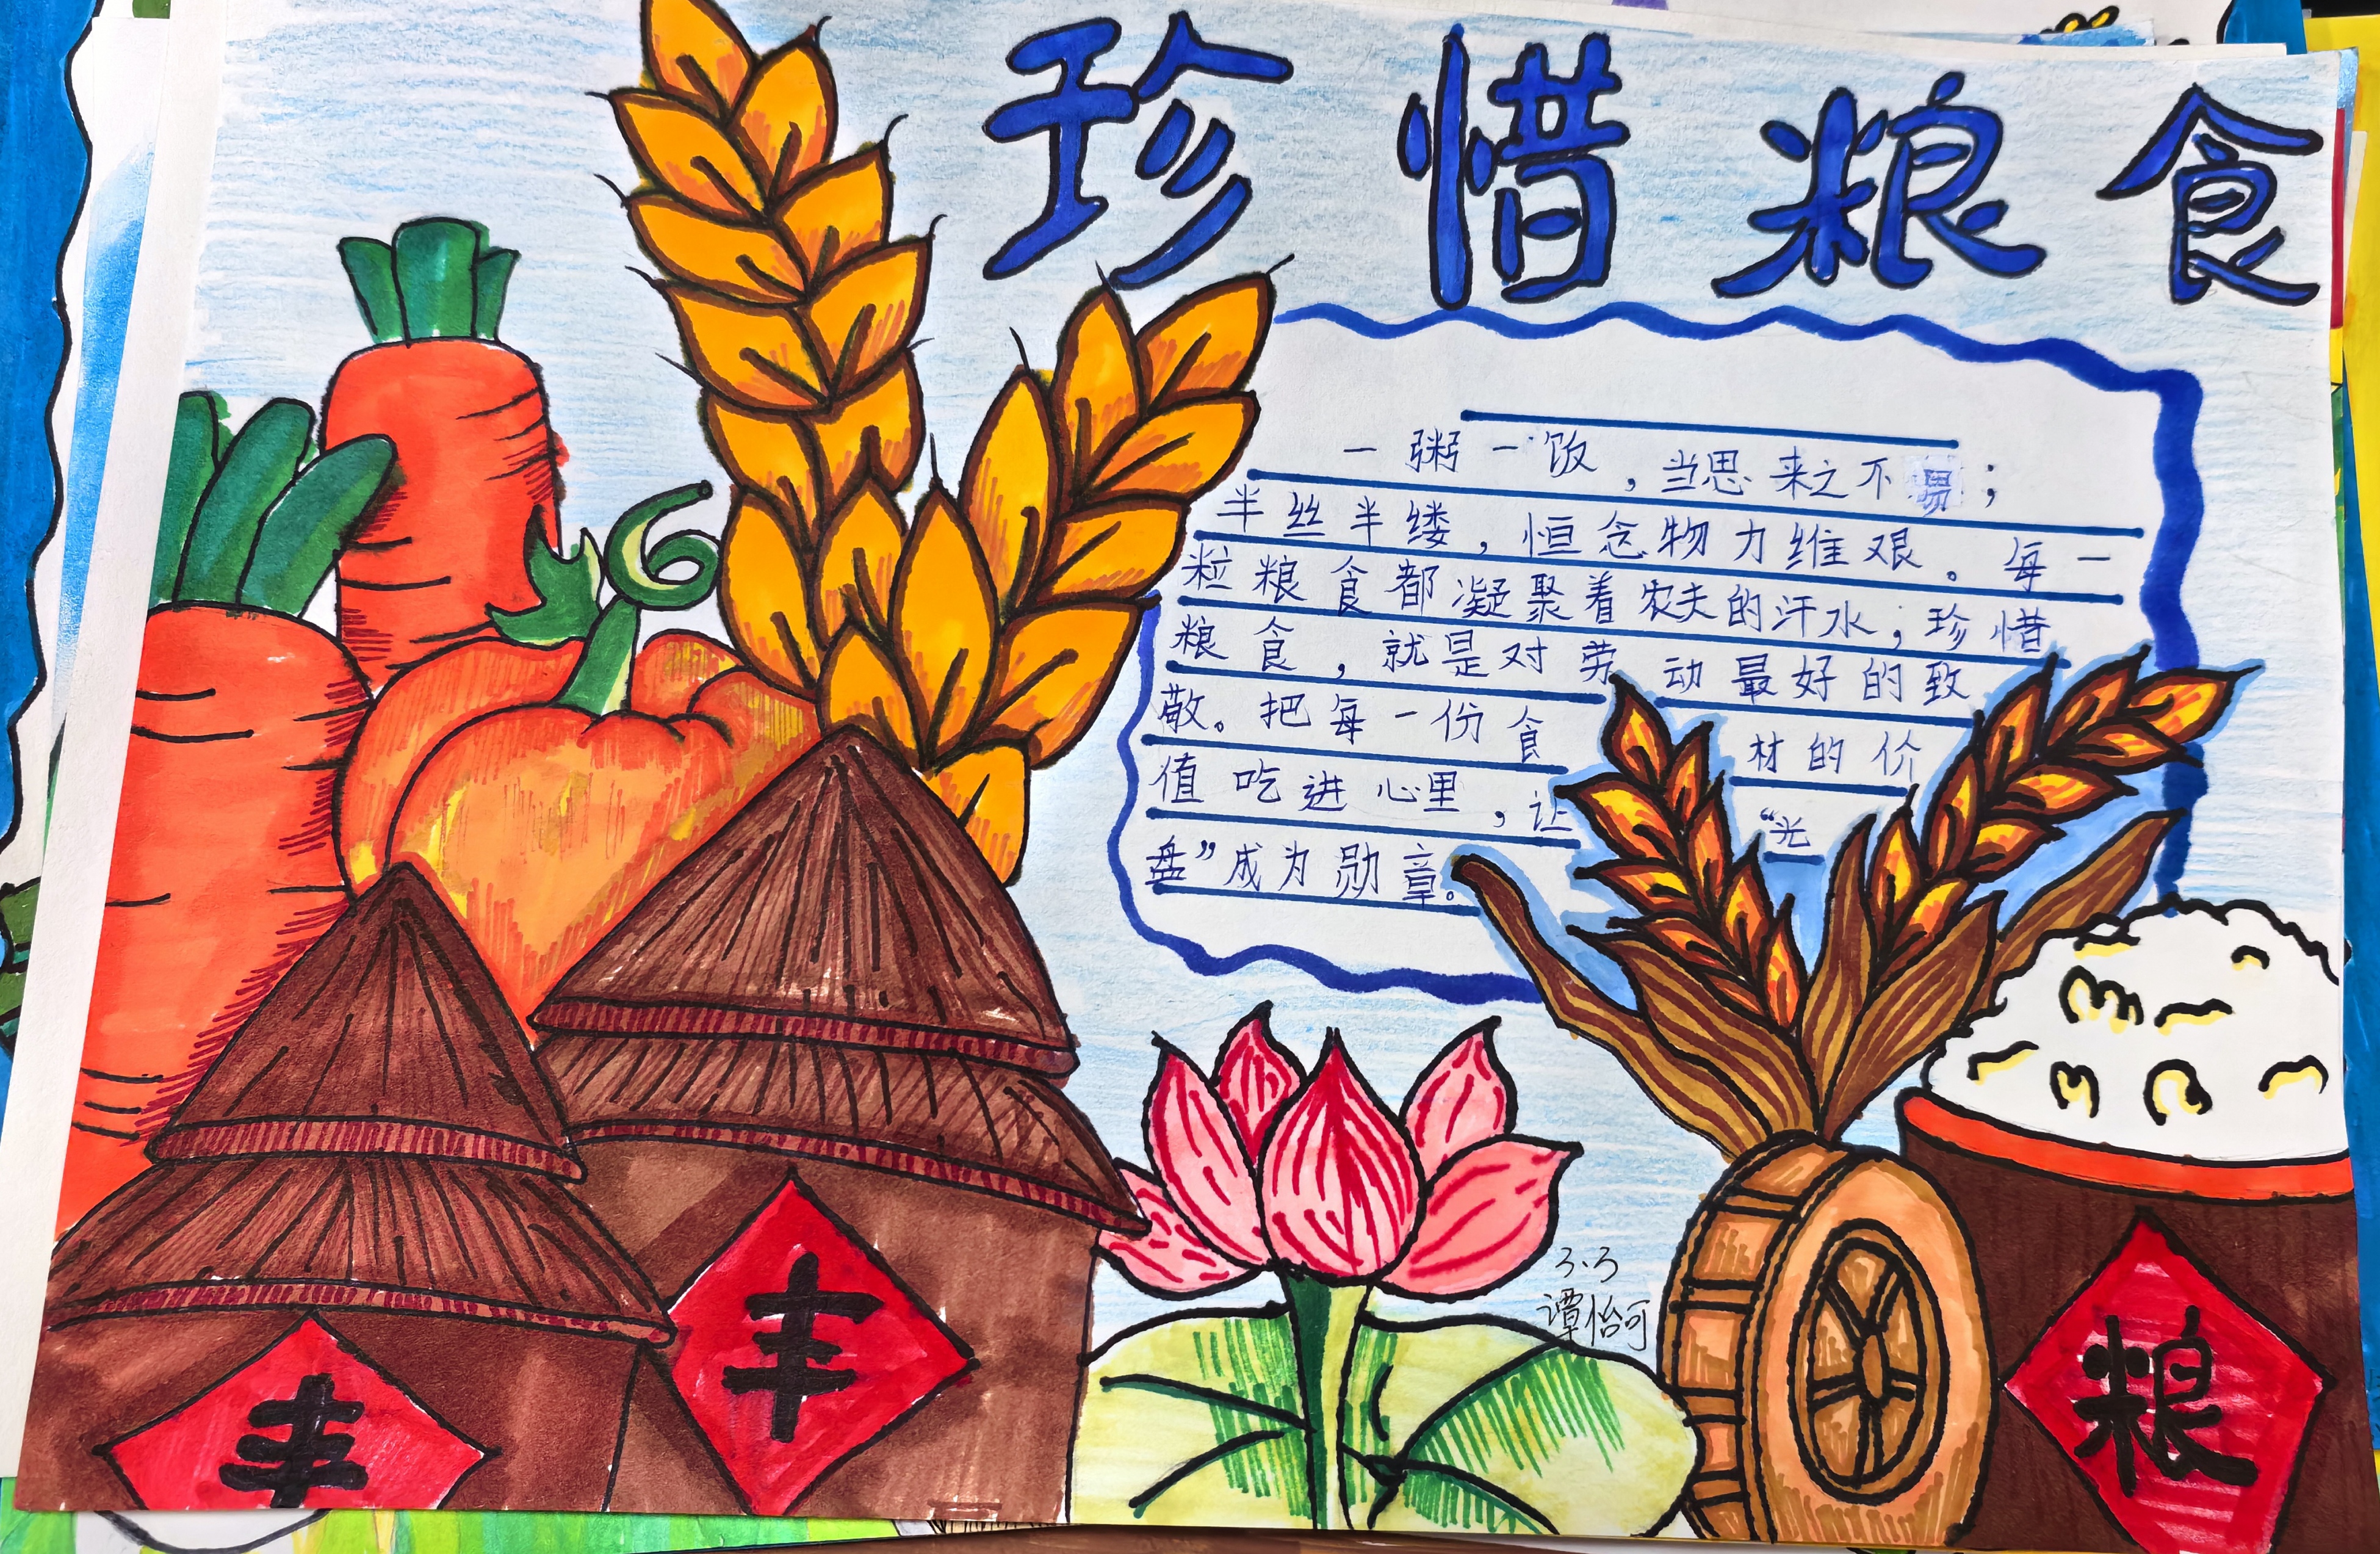 珍惜粮食
一粥一饭，当思来之不易；
半丝半缕，恒念物力维艰。每一
粒粮食都凝聚着农夫的汗水，珍惜
粮食，就是对劳动最好的致
敬。把每一份食材的价
值吃进心里，让“光
盘”成为勋章。
3.3
谭怡可
丰
丰
粮